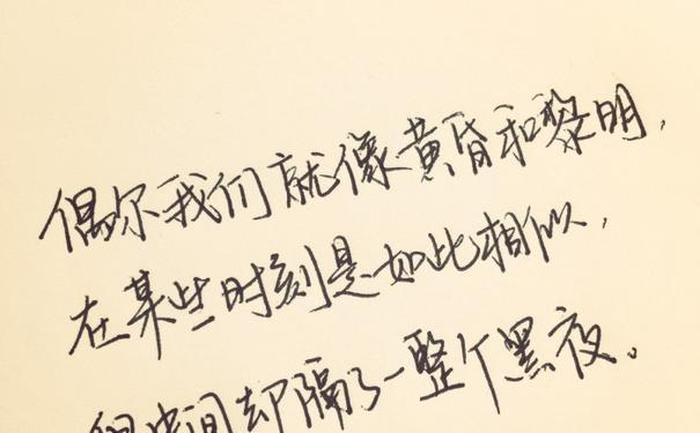 偶尔我们就像黄昏和黎明,
在某些时刻是如此相似,
但中间却隔了一整个黑夜。